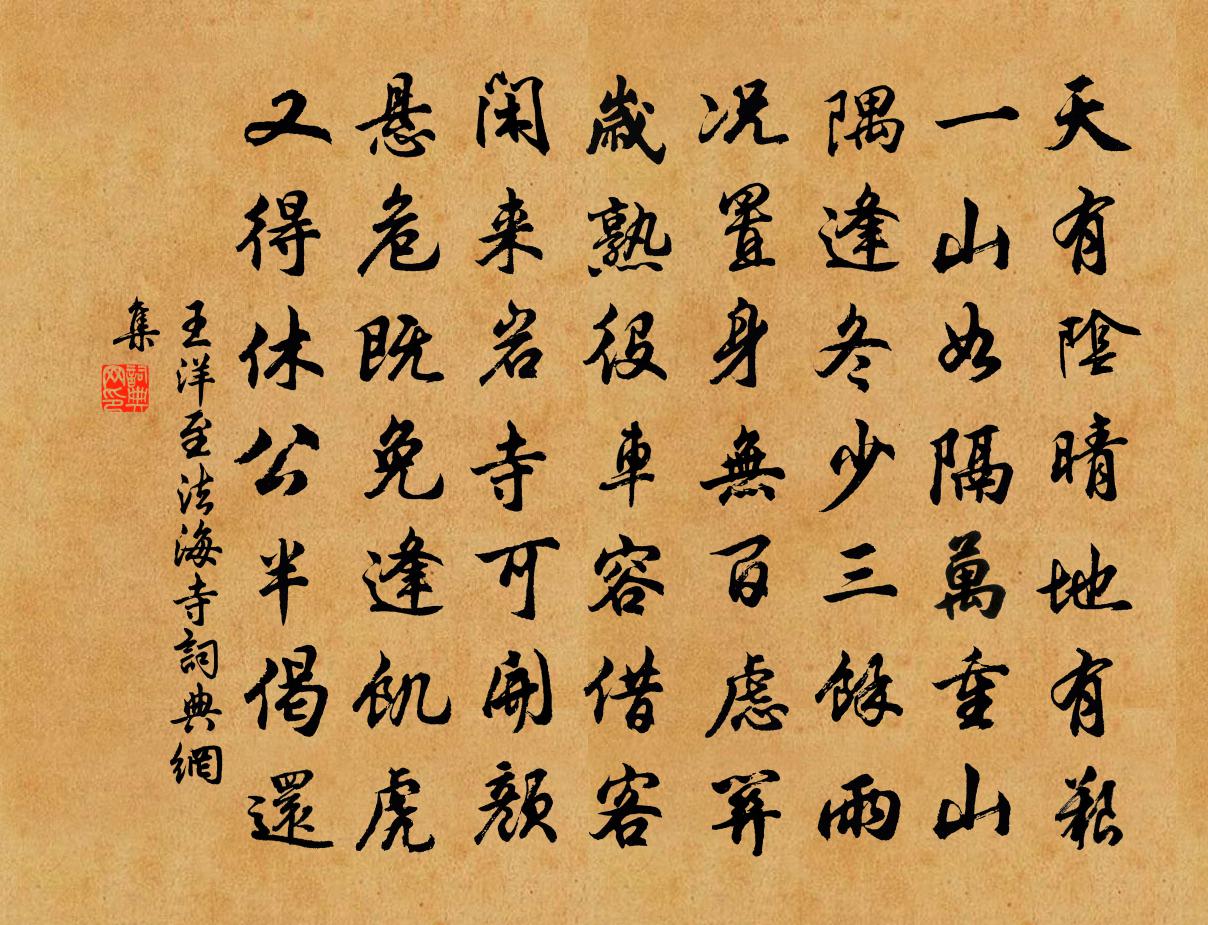 天有陰晴地有艱
一山如隔萬重山
隅逢冬少三餘雨
況置身無百慮關
歲熟役車容借客
閑来岩寺可開顏
悬危既免逢飢虎
又得休公半偈還
王洋至法海寺詞典網
集
詞典網印